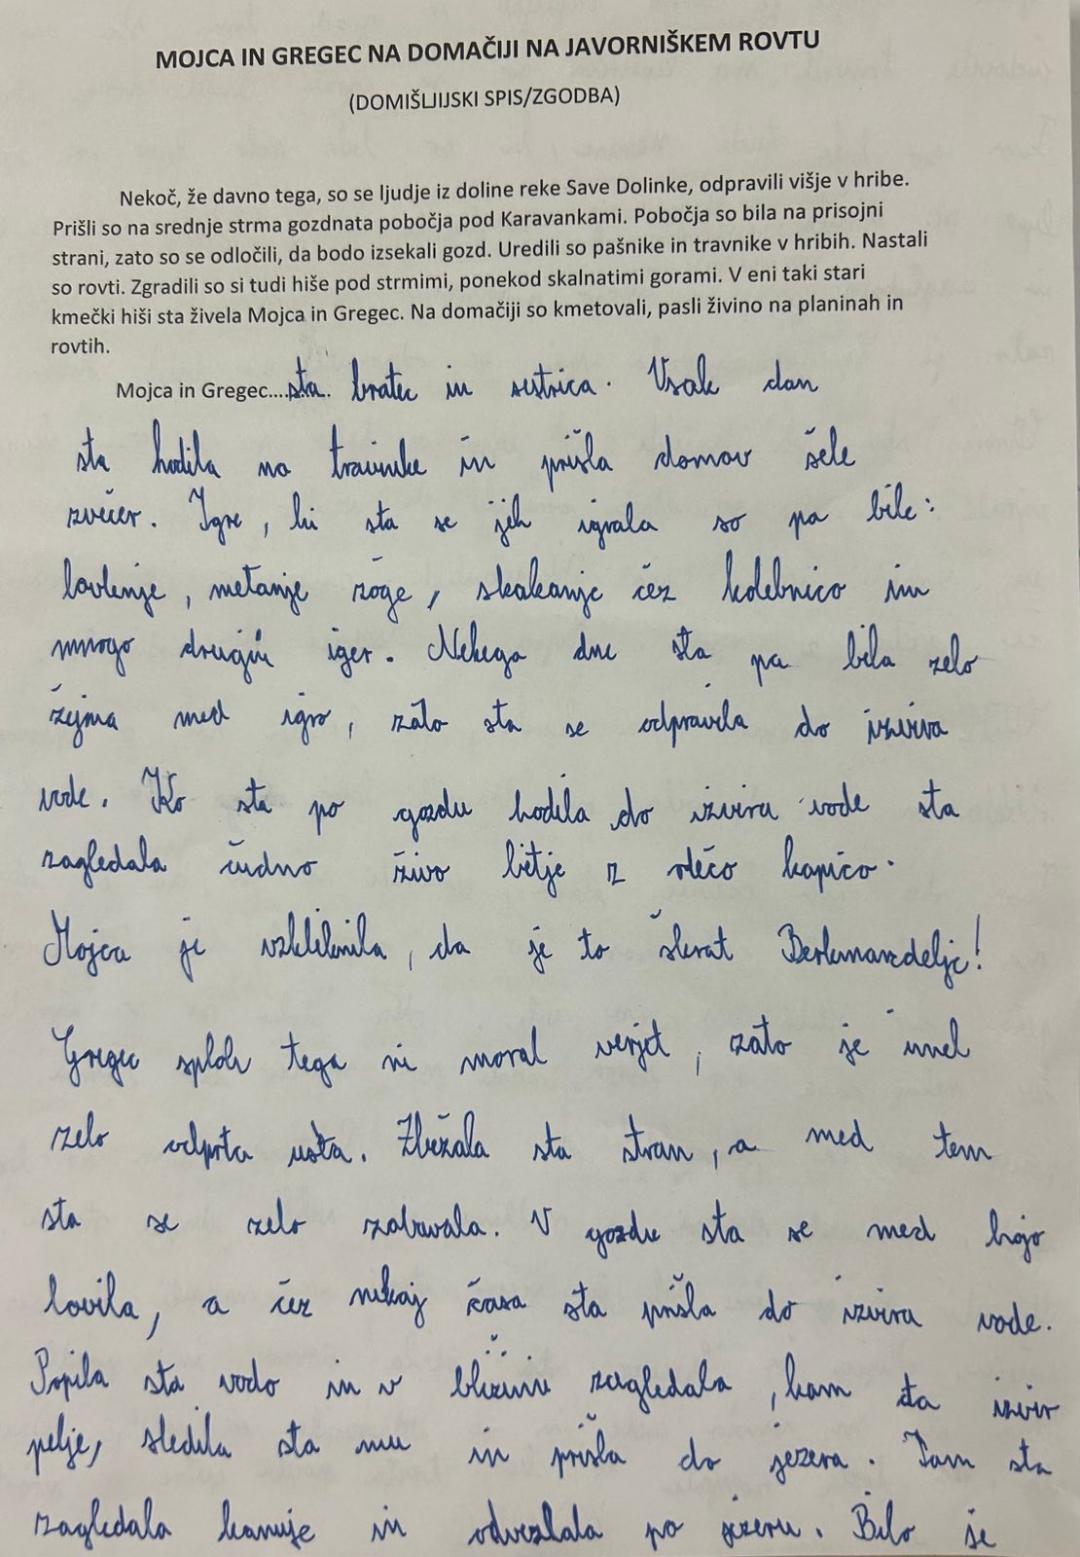 MOJCA IN GREGEC NA DOMAČIJI NA JAVORNIŠKEM ROVTU
(DOMIŠLJIJSKI SPIS/ZGODBA)
Nekoč, že davno tega, so se ljudje iz doline reke Save Dolinke, odpravili višje v hribe.
Prišli so na srednje strma gozdnata pobočja pod Karavankami. Pobočja so bila na prisojni
strani, zato so se odločili, da bodo izsekali gozd. Uredili so pašnike in travnike v hribih. Nastali
so rovti. Zgradili so si tudi hiše pod strmimi, ponekod skalnatimi gorami. V eni taki stari
kmečki hiši sta živela Mojca in Gregec. Na domačiji so kmetovali, pasli živino na planinah in
rovtih.
Mojca in Gregec....sta. bratec in sestrica. Vsak dan
sta hodila na travnike in prišla domov šele
zvečer. Igre, ki sta se jih igrala so pa bile:
lovlenje, metanje žoge, skakanje čez kolebnico in
mnogo drugih iger. Nekega dne sta pa bila zelo
žejna med igro, zato sta se odpravila do izvira
vode. Ko sta po gozdu hodila do izvira vode sta
zagledala čudno živo bitje z rdečo kapico.
Mojca je vzkliknila, da je to škrat Berkmandeljc!
Gregec sploh tega ni moral verjet, zato je imel
zelo odprta usta. Zbežala sta stran, a med tem
sta se zelo zabavala. V gozdu sta se med hojo
lovila, a čez nekaj časa sta prišla do izvira vode.
Popila sta vodo in v bližini zagledala, kam ta izvir
pelje, sledila sta mu in prišla do jezera. Tam sta
zagledala kanuje in odveslala po jezeru. Bilo je